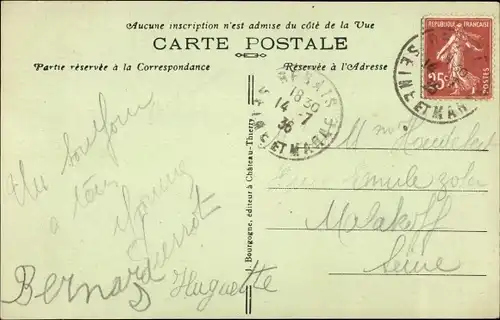 Aucune inscription n'est admise du côté de la Vue
CARTE POSTALE
Partie réservée à la Correspondance
Réservée à l'Adresse
RÉPUBLIQUE FRANÇAISE
25c
SEINE ET MARNE
18 30
14 - 7
36
SEINE ET MARNE
J. Bourgogne, éditeur à Château-Thierry
Un bonjour
a tous
Bernard
Huguette
M
Emile Zola
Malakoff
Seine